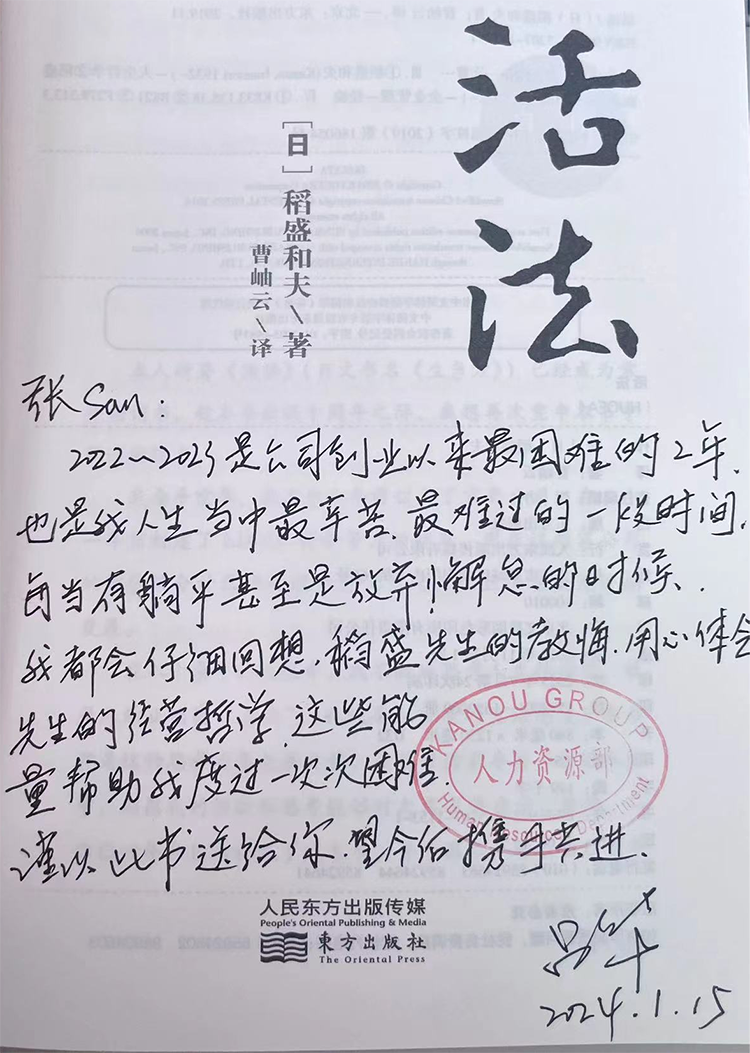 活法
[日]稻盛和夫\著
曹岫云\译
张San：
2022~2023是公司创业以来最困难的2年、
也是我人生当中最辛苦、最难过的一段时间，
每当有躺平甚至是放弃懈怠的时候、
我都会仔细回想、稻盛先生的教悔、用心体会
先生的经营哲学、这些能
量帮助我度过一次次困难、
谨以此书送给你、望今后携手共进、
KANOU GROUP
人力资源部
Human Resources Department
人民东方出版传媒
People's Oriental Publishing & Media
东方出版社
The Oriental Press
2024.1.15